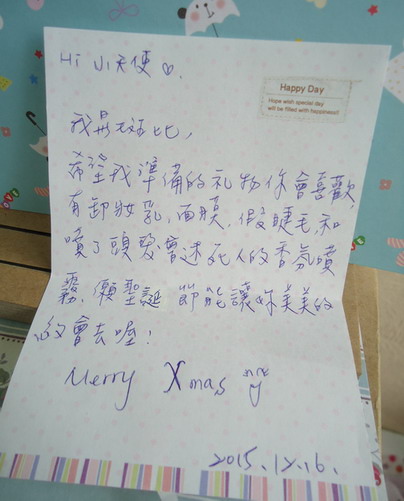 Hi 小天使♡.
Happy Day
Hope wish special day
will be filled with happiness!!
我是
希望我準備的礼物你會喜歡
有卸妝乳,面膜,假睫毛,和
噴了頭髮會迷死人的香氛噴
霧,願聖誕節能讓妳美美的
約會去喔!
Merry Xmas
2015.12.16.